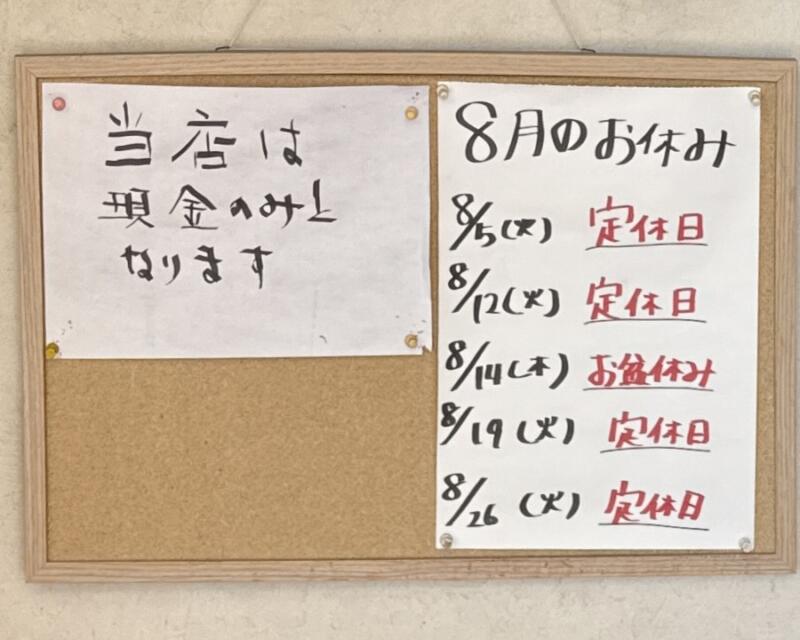 当店は
現金のみと
なります
8月のお休み
8/5(火) 定休日
8/12(火) 定休日
8/14(木) お盆休み
8/19(火) 定休日
8/26(火) 定休日